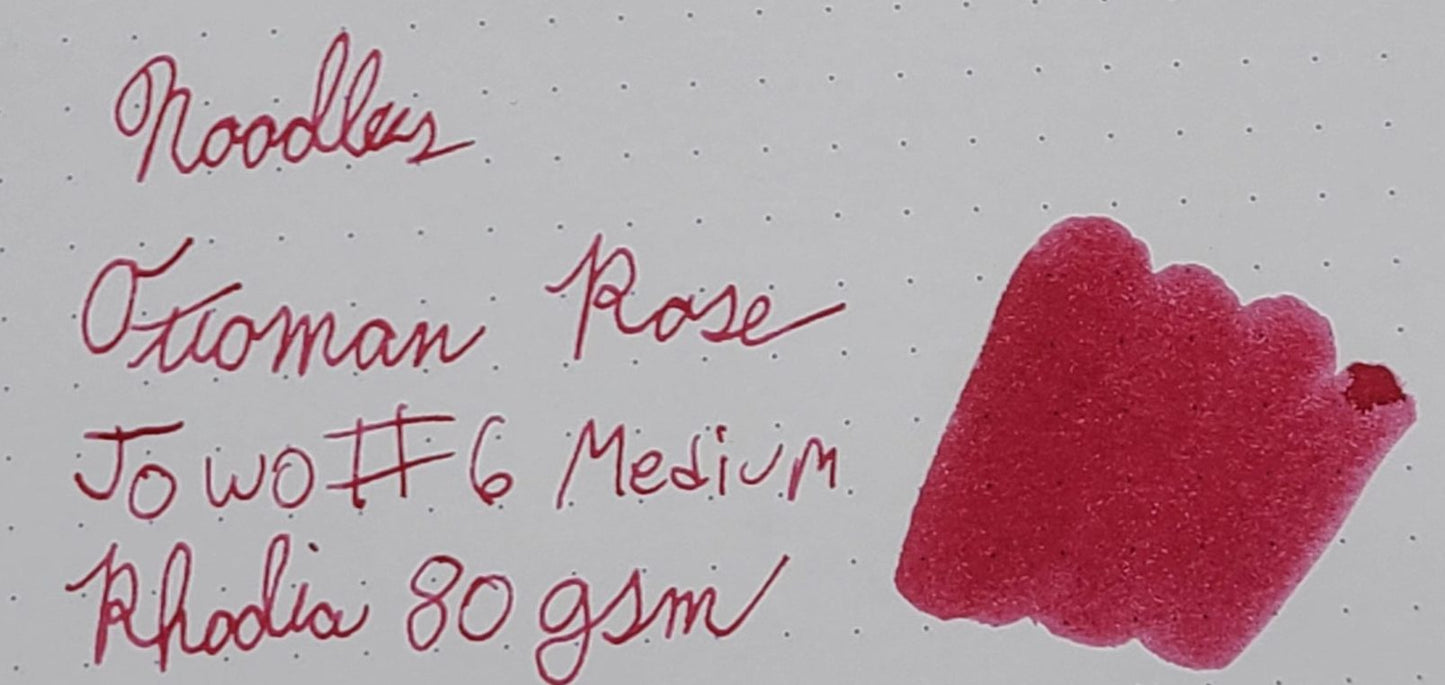 Noodles
Ottoman Rose
Jowo #6 Medium
Rhodia 80 gsm